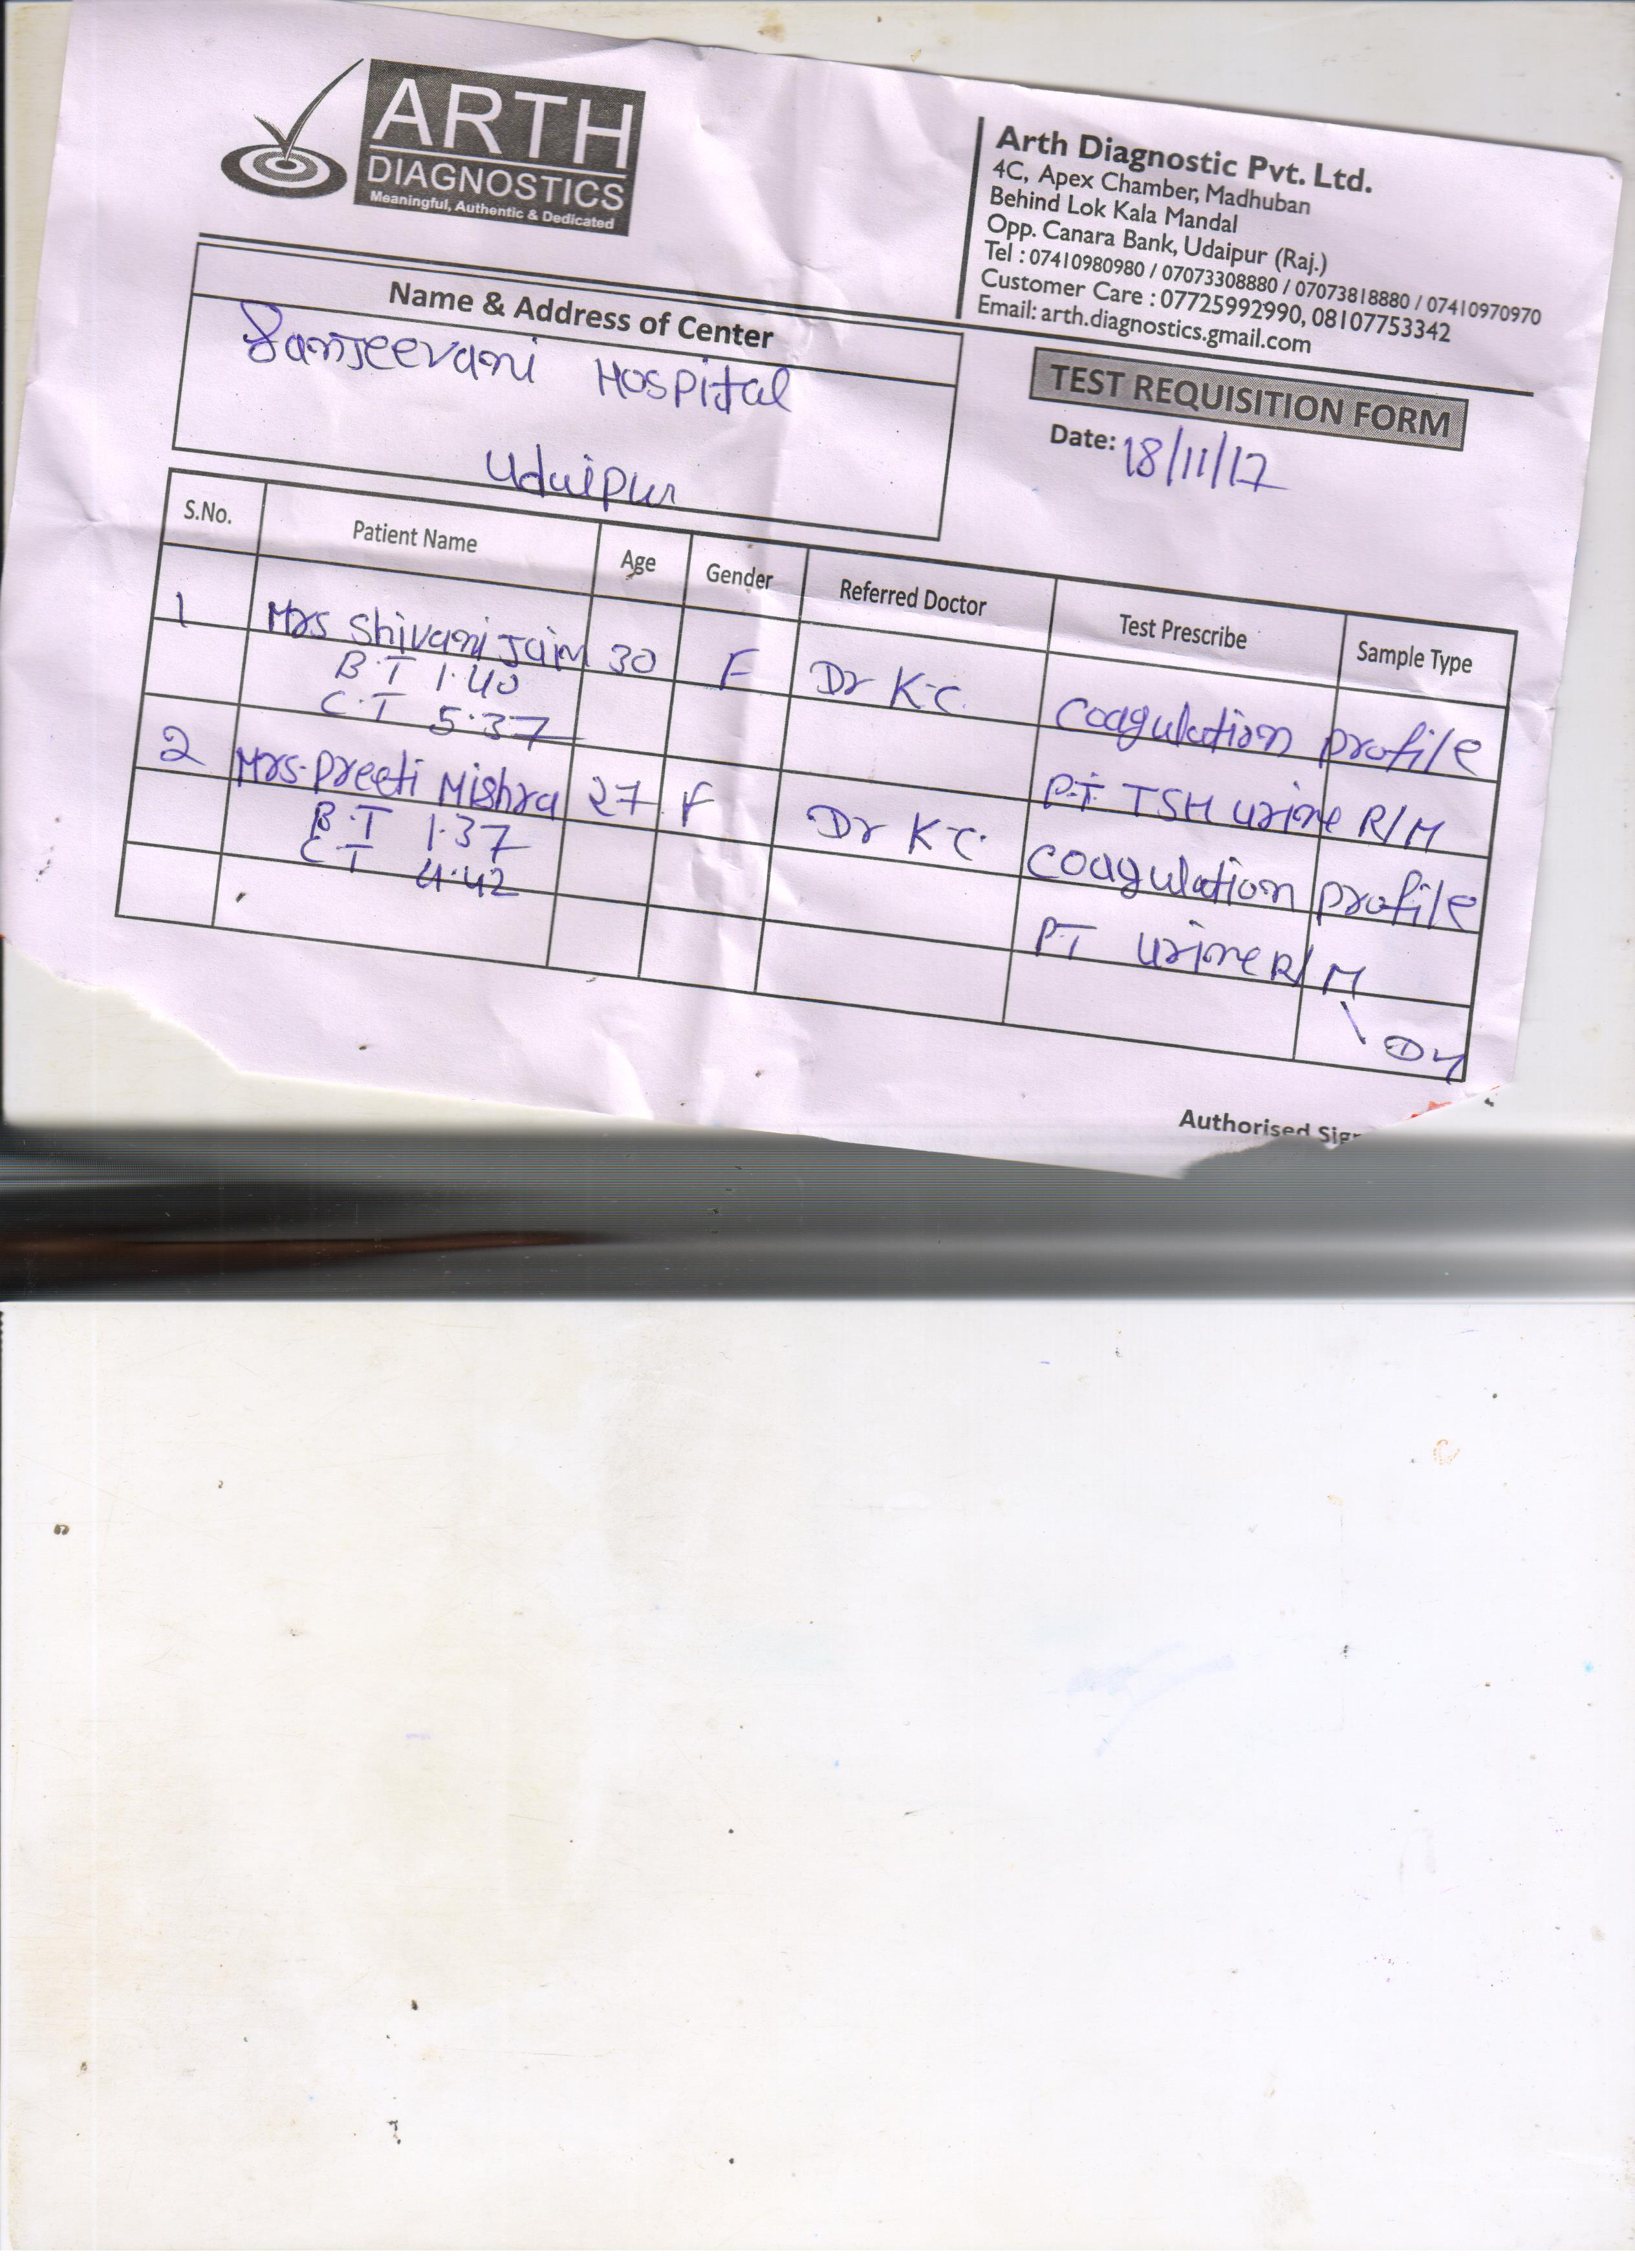 ARTH
DIAGNOSTICS
Meaningful, Authentic & Dedicated
Arth Diagnostic Pvt. Ltd.
4C, Apex Chamber, Madhuban
Behind Lok Kala Mandal
Opp. Canara Bank, Udaipur (Raj.)
Tel : 07410980980 / 07073308880 / 07073818880 / 07410970970
Customer Care : 07725992990, 08107753342
Email: arth.diagnostics.gmail.com
Name & Address of Center
Sanjeevani Hospital
Udaipur
TEST REQUISITION FORM
Date: 18/11/17
S.No. Patient Name Age Gender Referred Doctor Test Prescribe Sample Type
1 Mrs Shivani Jain 30 F Dr K.C. Coagulation profile
B.T 1.40
C.T 5.37
P.T. TSH urine R/M
2 Mrs. Preeti Mishra 27 F Dr K.C. Coagulation profile
B.T 1.37
C T 4.42
P.T urine R/M
Authorised